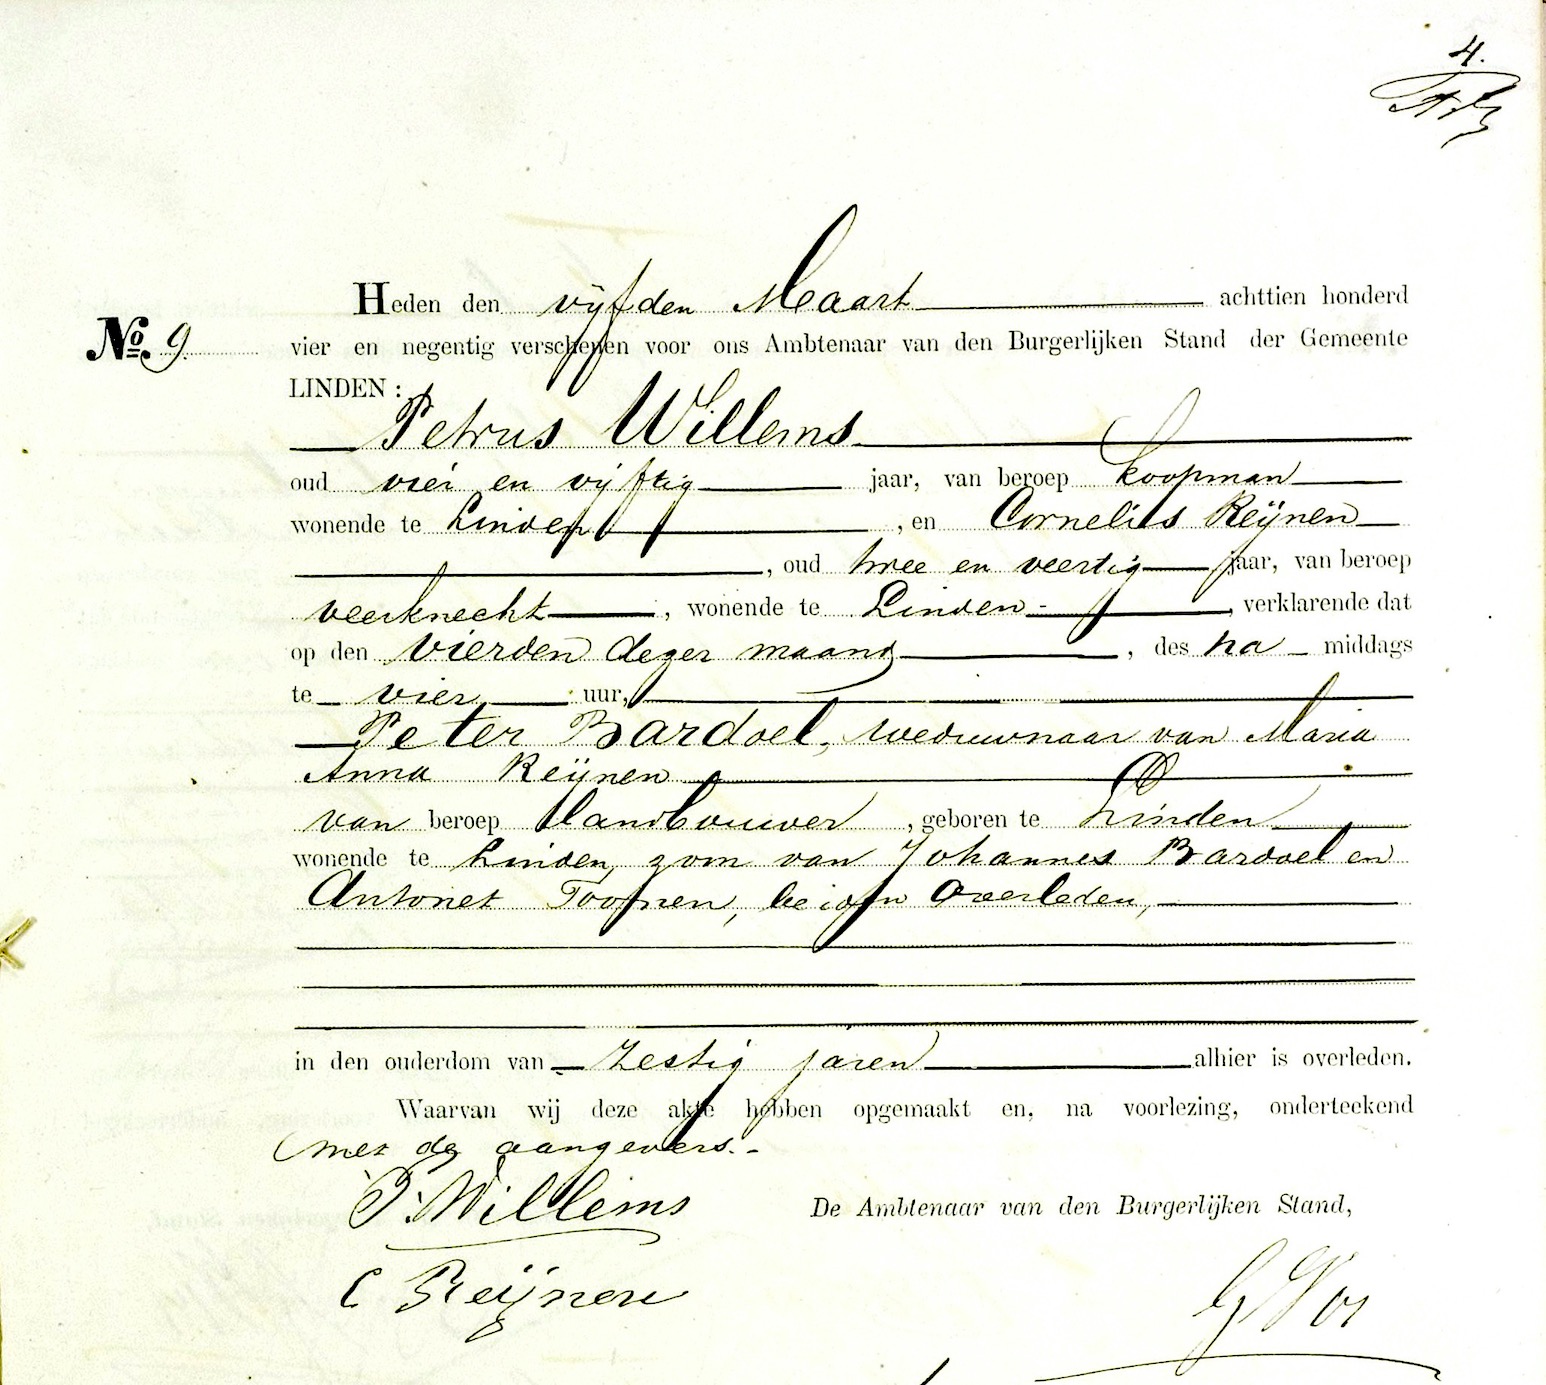 4.
Heden den vijfden Maart achttien honderd
No. 9. vier en negentig verschenen voor ons Ambtenaar van den Burgerlijken Stand der Gemeente
LINDEN:
Petrus Willems
oud vier en vijftig jaar, van beroep koopman
wonende te Linden, en Cornelis Reijnen
, oud twee en veertig jaar, van beroep
veerknecht, wonende te Linden, verklarende dat
op den vierden dezer maand, des na middags
te vier uur,
Peter Bardoel, weduwnaar van Maria
Anna Reijnen
van beroep landbouwer, geboren te Linden
wonende te Linden, zoon van Johannes Bardoel en
Antonet Toonen, beiden overleden,
in den ouderdom van zestig jaren alhier is overleden.
Waarvan wij deze akte hebben opgemaakt en, na voorlezing, onderteekend
met de aangevers.
P. Willems
De Ambtenaar van den Burgerlijken Stand,
C Reijnen
G Vos